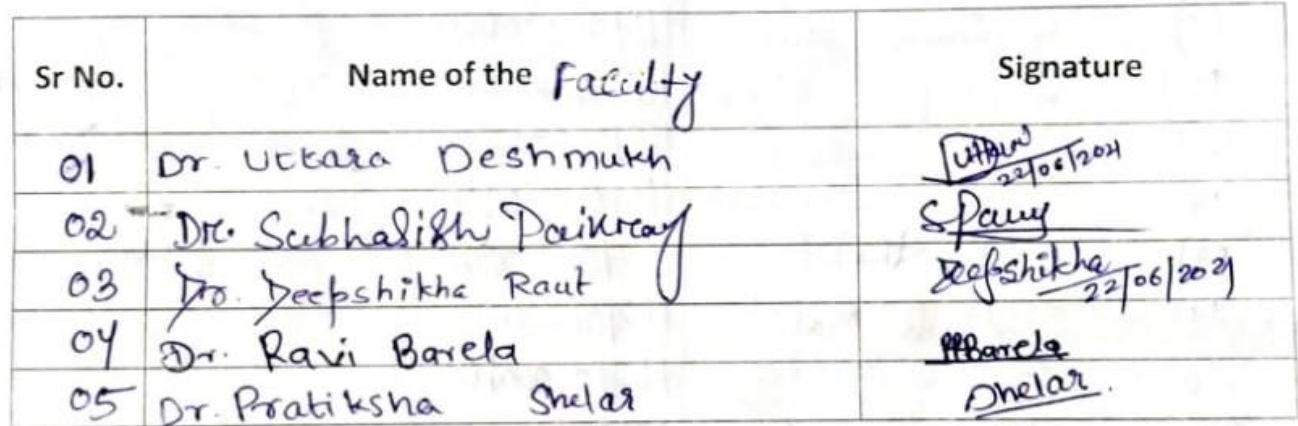 Sr No. Name of the Faculty Signature
01 Dr. Uttara Deshmukh Uttara 22/06/2021
02 Dr. Subhasish Paikray
03 Dr. Deepshikha Raut Deepshikha 22/06/2021
04 Dr. Ravi Barela Barela
05 Dr. Pratiksha Shelar Shelar.